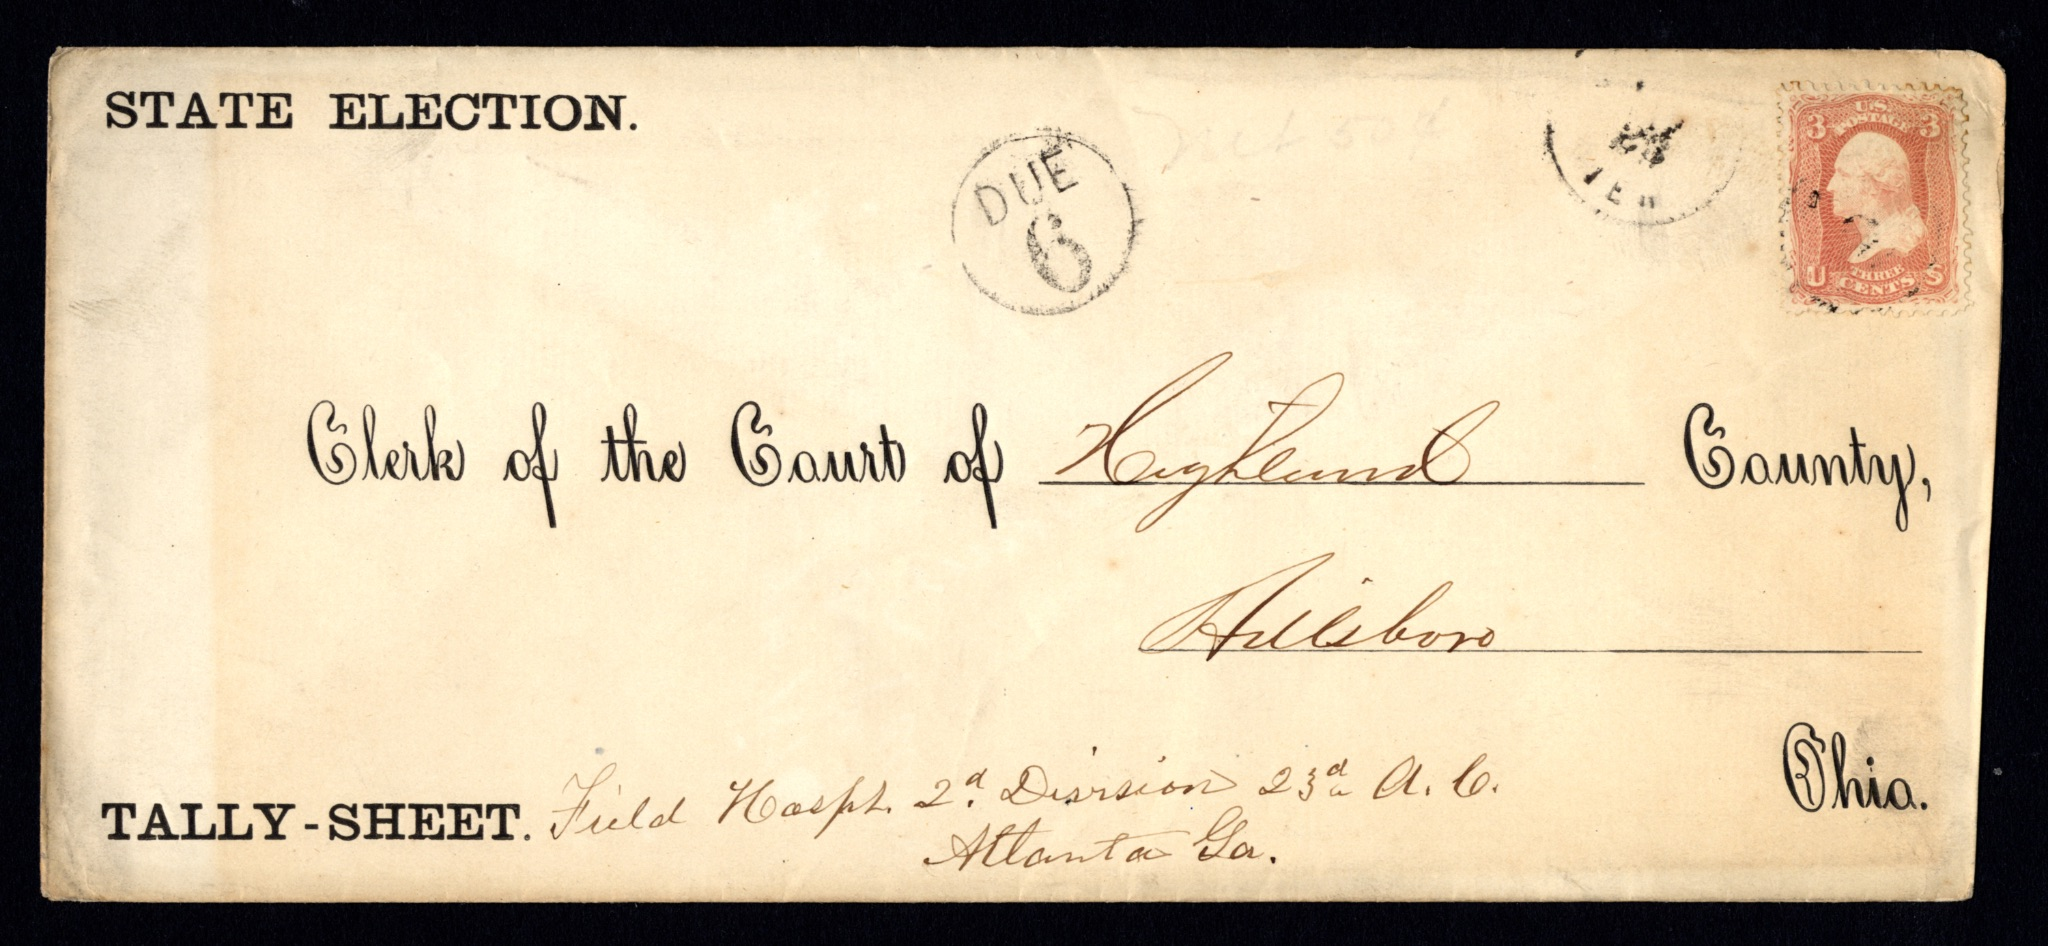 STATE ELECTION.
DUE
6
U.S.
POSTAGE
3 3
THREE
U CENTS S
Clerk of the Court of Highland County,
Hillsboro
Ohio.
TALLY-SHEET. Field Hospt. 2d. Division 23d A. C.
Atlanta Ga.